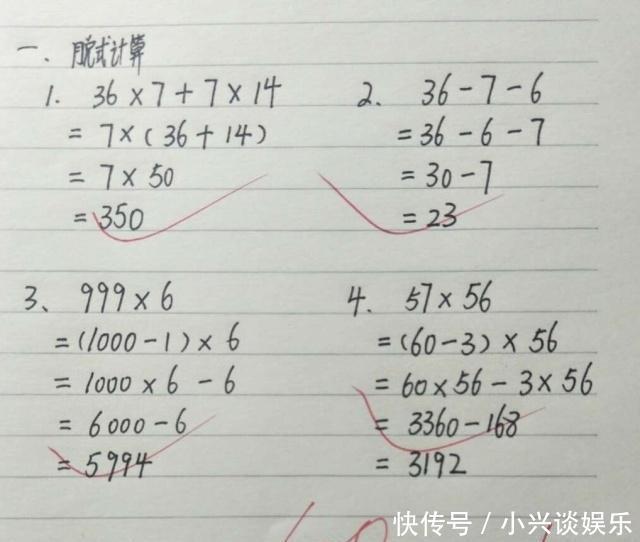 一、脱式计算
1. 36×7+7×14
=7×(36+14)
=7×50
=350
2. 36-7-6
=36-6-7
=30-7
=23
3、999×6
=(1000-1)×6
=1000×6-6
=6000-6
=5994
4. 57×56
=(60-3)×56
=60×56-3×56
=3360-168
=3192
快传号/小兴谈娱乐